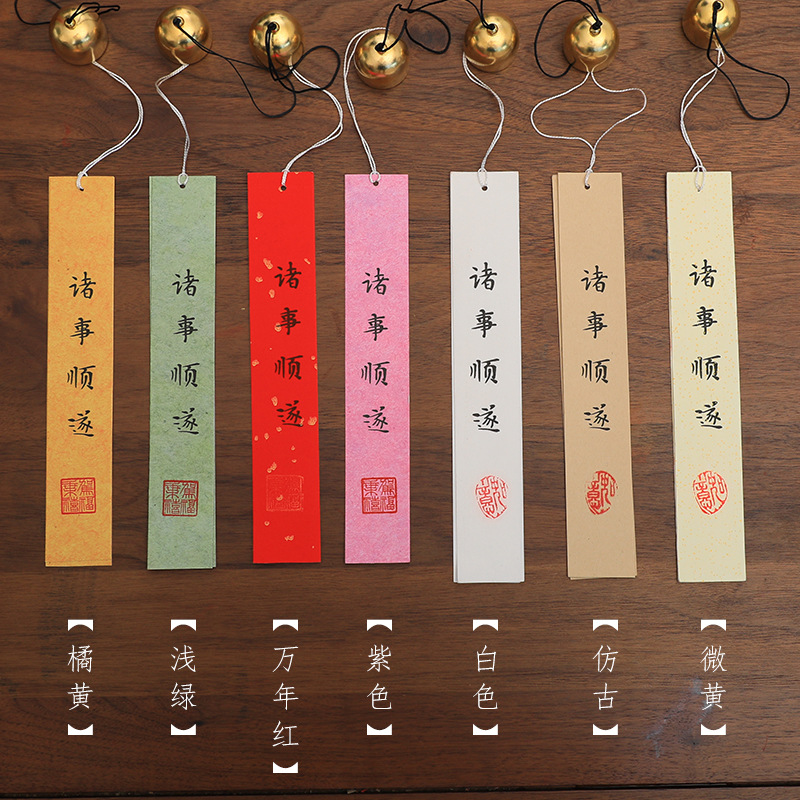 诸事顺遂
诸事顺遂
诸事顺遂
诸事顺遂
诸事顺遂
诸事顺遂
诸事顺遂
如意
如意
如意
【橘黄】
【浅绿】
【万年红】
【紫色】
【白色】
【仿古】
【微黄】